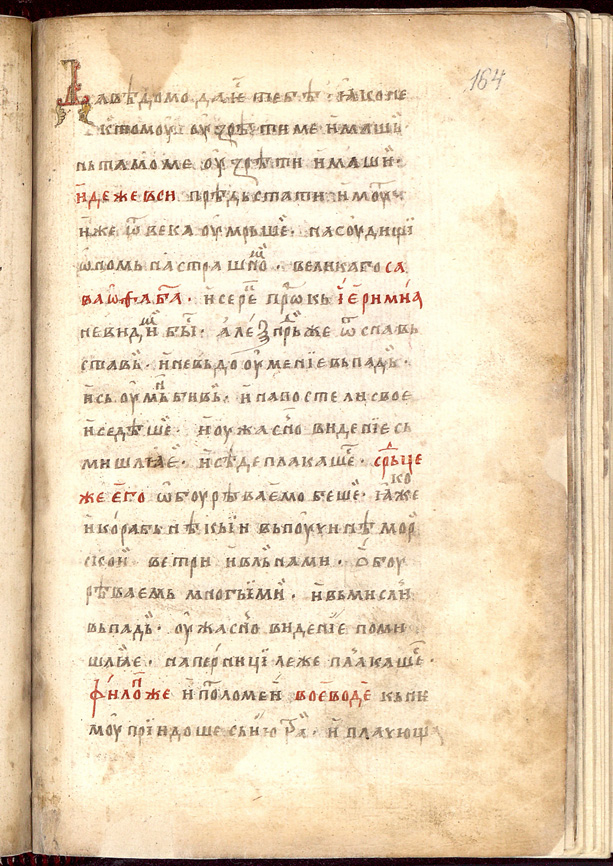 164
Даведомо да ѥ тебѣ · ꙗко не
к томоу оузрѣти ме имашь
нь тамо ме оузрѣти имаши ·
идеже вси прѣдьстати имоуⷮ
иже ѿ века оумрьше · на соудищї
ѡномь на страшно · великаго са
ваѡѳа ба · и сере прⷪ҇ркь їеримиꙗ
невиди бы · але прѣже ѿ славь
ставь · и невьдооумениѥ вьпадь ·
и сь оумь бивь · и на постели своѥ
и седѣше · и оужасно видениѥ сь
мишлꙗѥ · и сѣде плакаше · срьце
же ѥго ѡбоурѣваемо беше · ꙗкоже
и корабь нѣкыи вь поучинѣ мор
скои ветри и вльнами · обоу
рѣваѥмь многыими · и вь мисли
вьпадь · оужасно видениѥ поми
шлꙗѥ · на перници леже плакаше ·
филоⷩ же и птоломеи воѥводе кь не
моу приидоше сь нѡю · и плачюща